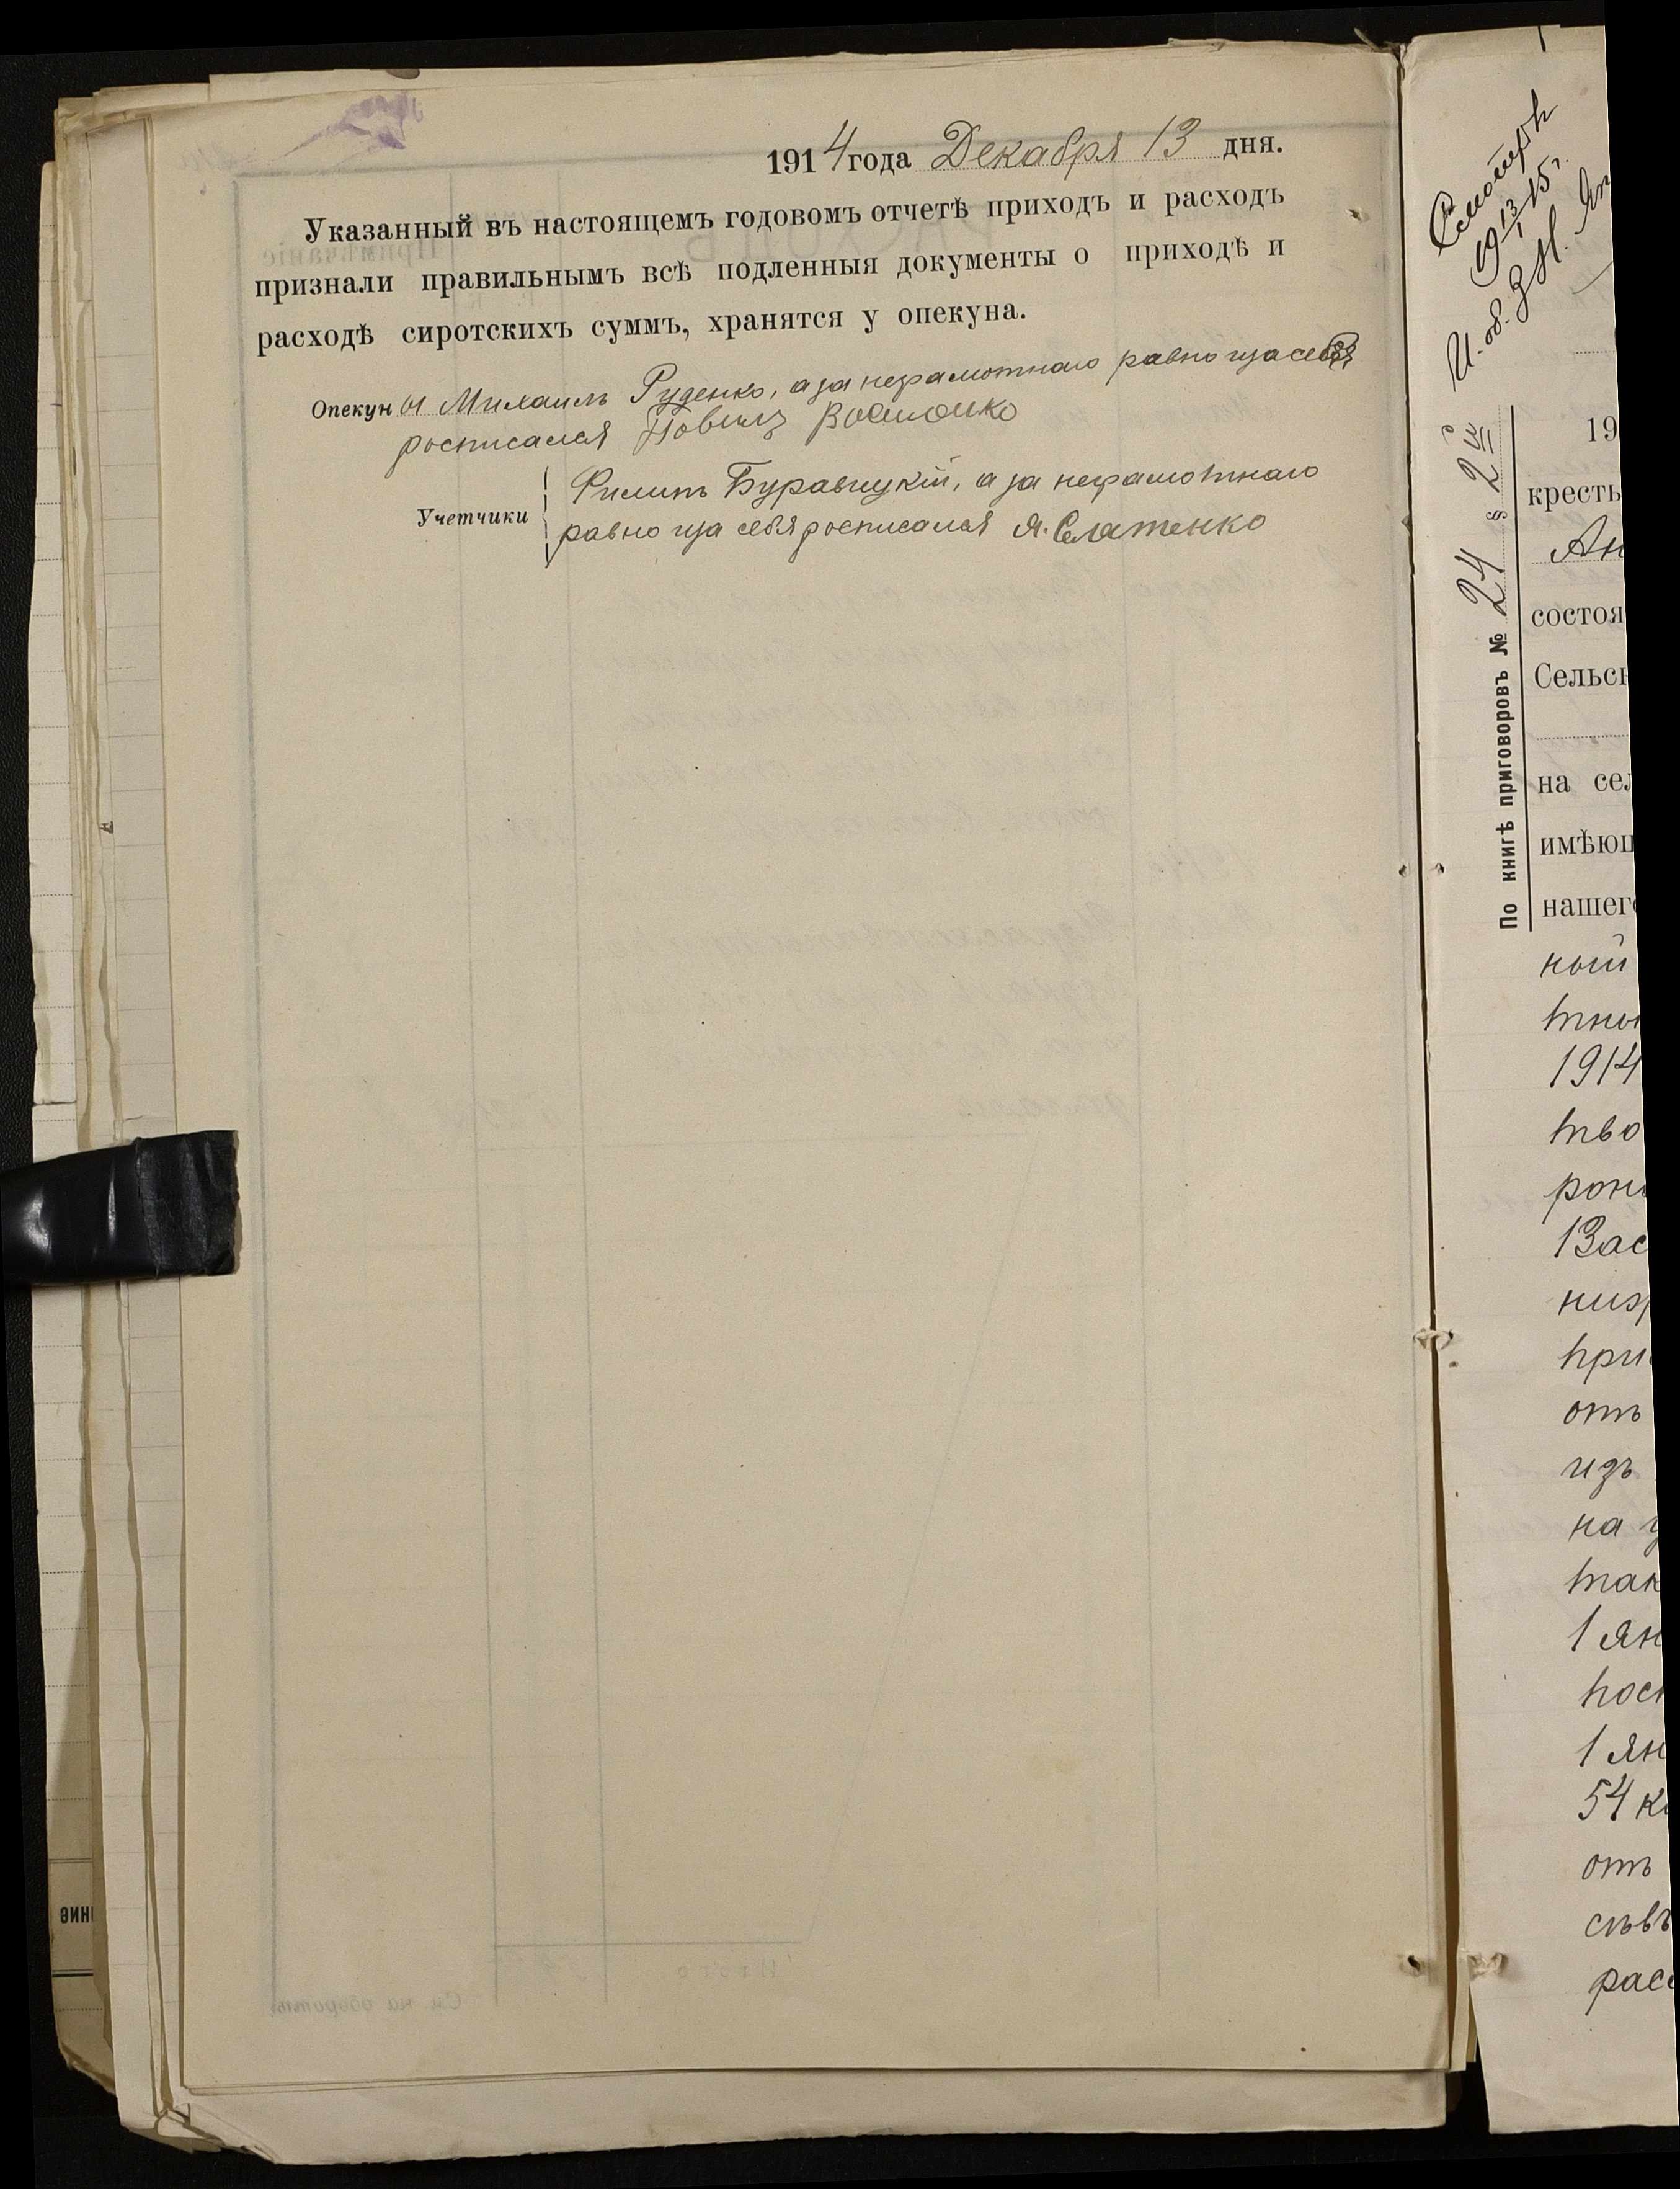 1914 года Декабря 13 дня.
Указанный въ настоящемъ годовомъ отчетѣ приходъ и расходъ
признали правильнымъ всѣ подленныя документы о приходѣ и
расходѣ сиротскихъ суммъ, хранятся у опекуна.
Опекуны Михаилъ Руденко, а за неграмотнаго равно и за себя
росписался
Учетчики Филипъ Буравицкій, а за неграмотнаго
равно и за себя росписался Я.
По книгѣ приговоровъ № 24 § 2
19
кресть
Ан
состоя
Сельск
на сел
имѣющ
нашего
ный
тны
1914
тво
рон
Зас
низ
при
отъ
изъ
на
так
1 ян
пос
1 ян
54 к
отъ
съвъ
рас
ние
См. на оборотѣ
Итого
Примѣчаніе